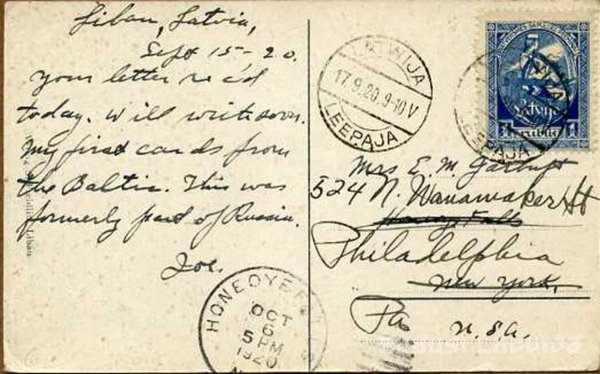 Libau, Latvia,
Sept 15 - 20.
your letter rec'd
today. Will write soon.
My first cards from
the Baltic. This was
formerly part of Russia.
Joe.
LATWIJA
17.9.20.9-10V
LEEPAJA
HONEOYE
OCT
6
5 PM
1920
N.
5
Latvija
Republic
WIJA
LEEPAJA
Mrs E. M.
524 N. Wanamaker St
Honeoye Falls
Philadelphia
New York.
Pa
U.S.A.
Libau